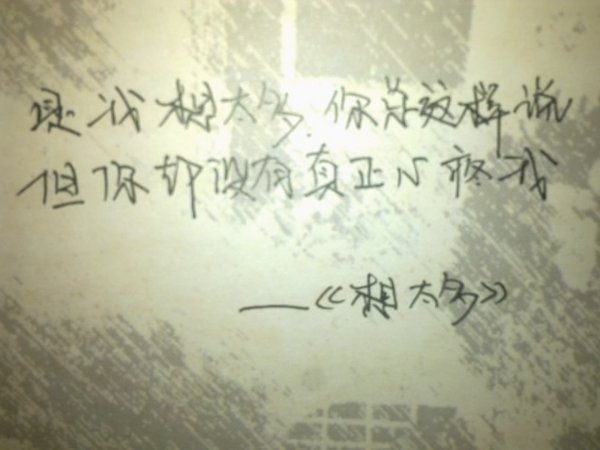 是我想太多.你总这样说
但你却没有真正心疼我
——《想太多》